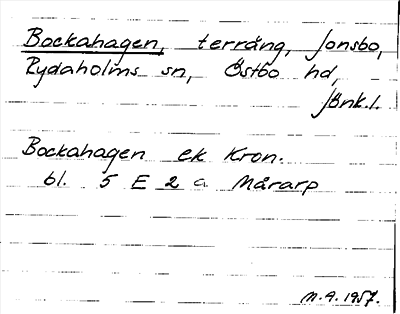 Bockahagen, terräng, Jonsbo,
Rydaholms sn, Östbo hd,
Jönk.l.
Bockahagen ek Kron.
bl. 5 E 2 c Mårarp
M.A. 1957.